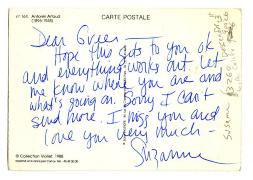 n° 168. Antonin Artaud
(1896-1948)
CARTE POSTALE
Dear
Hope this gets to you ok
and everything works out. Let
me know where you are and
what's going on. Sorry I can't
send more. I miss you and
love you very much -
Suzanne
© Collection Viollet 1988